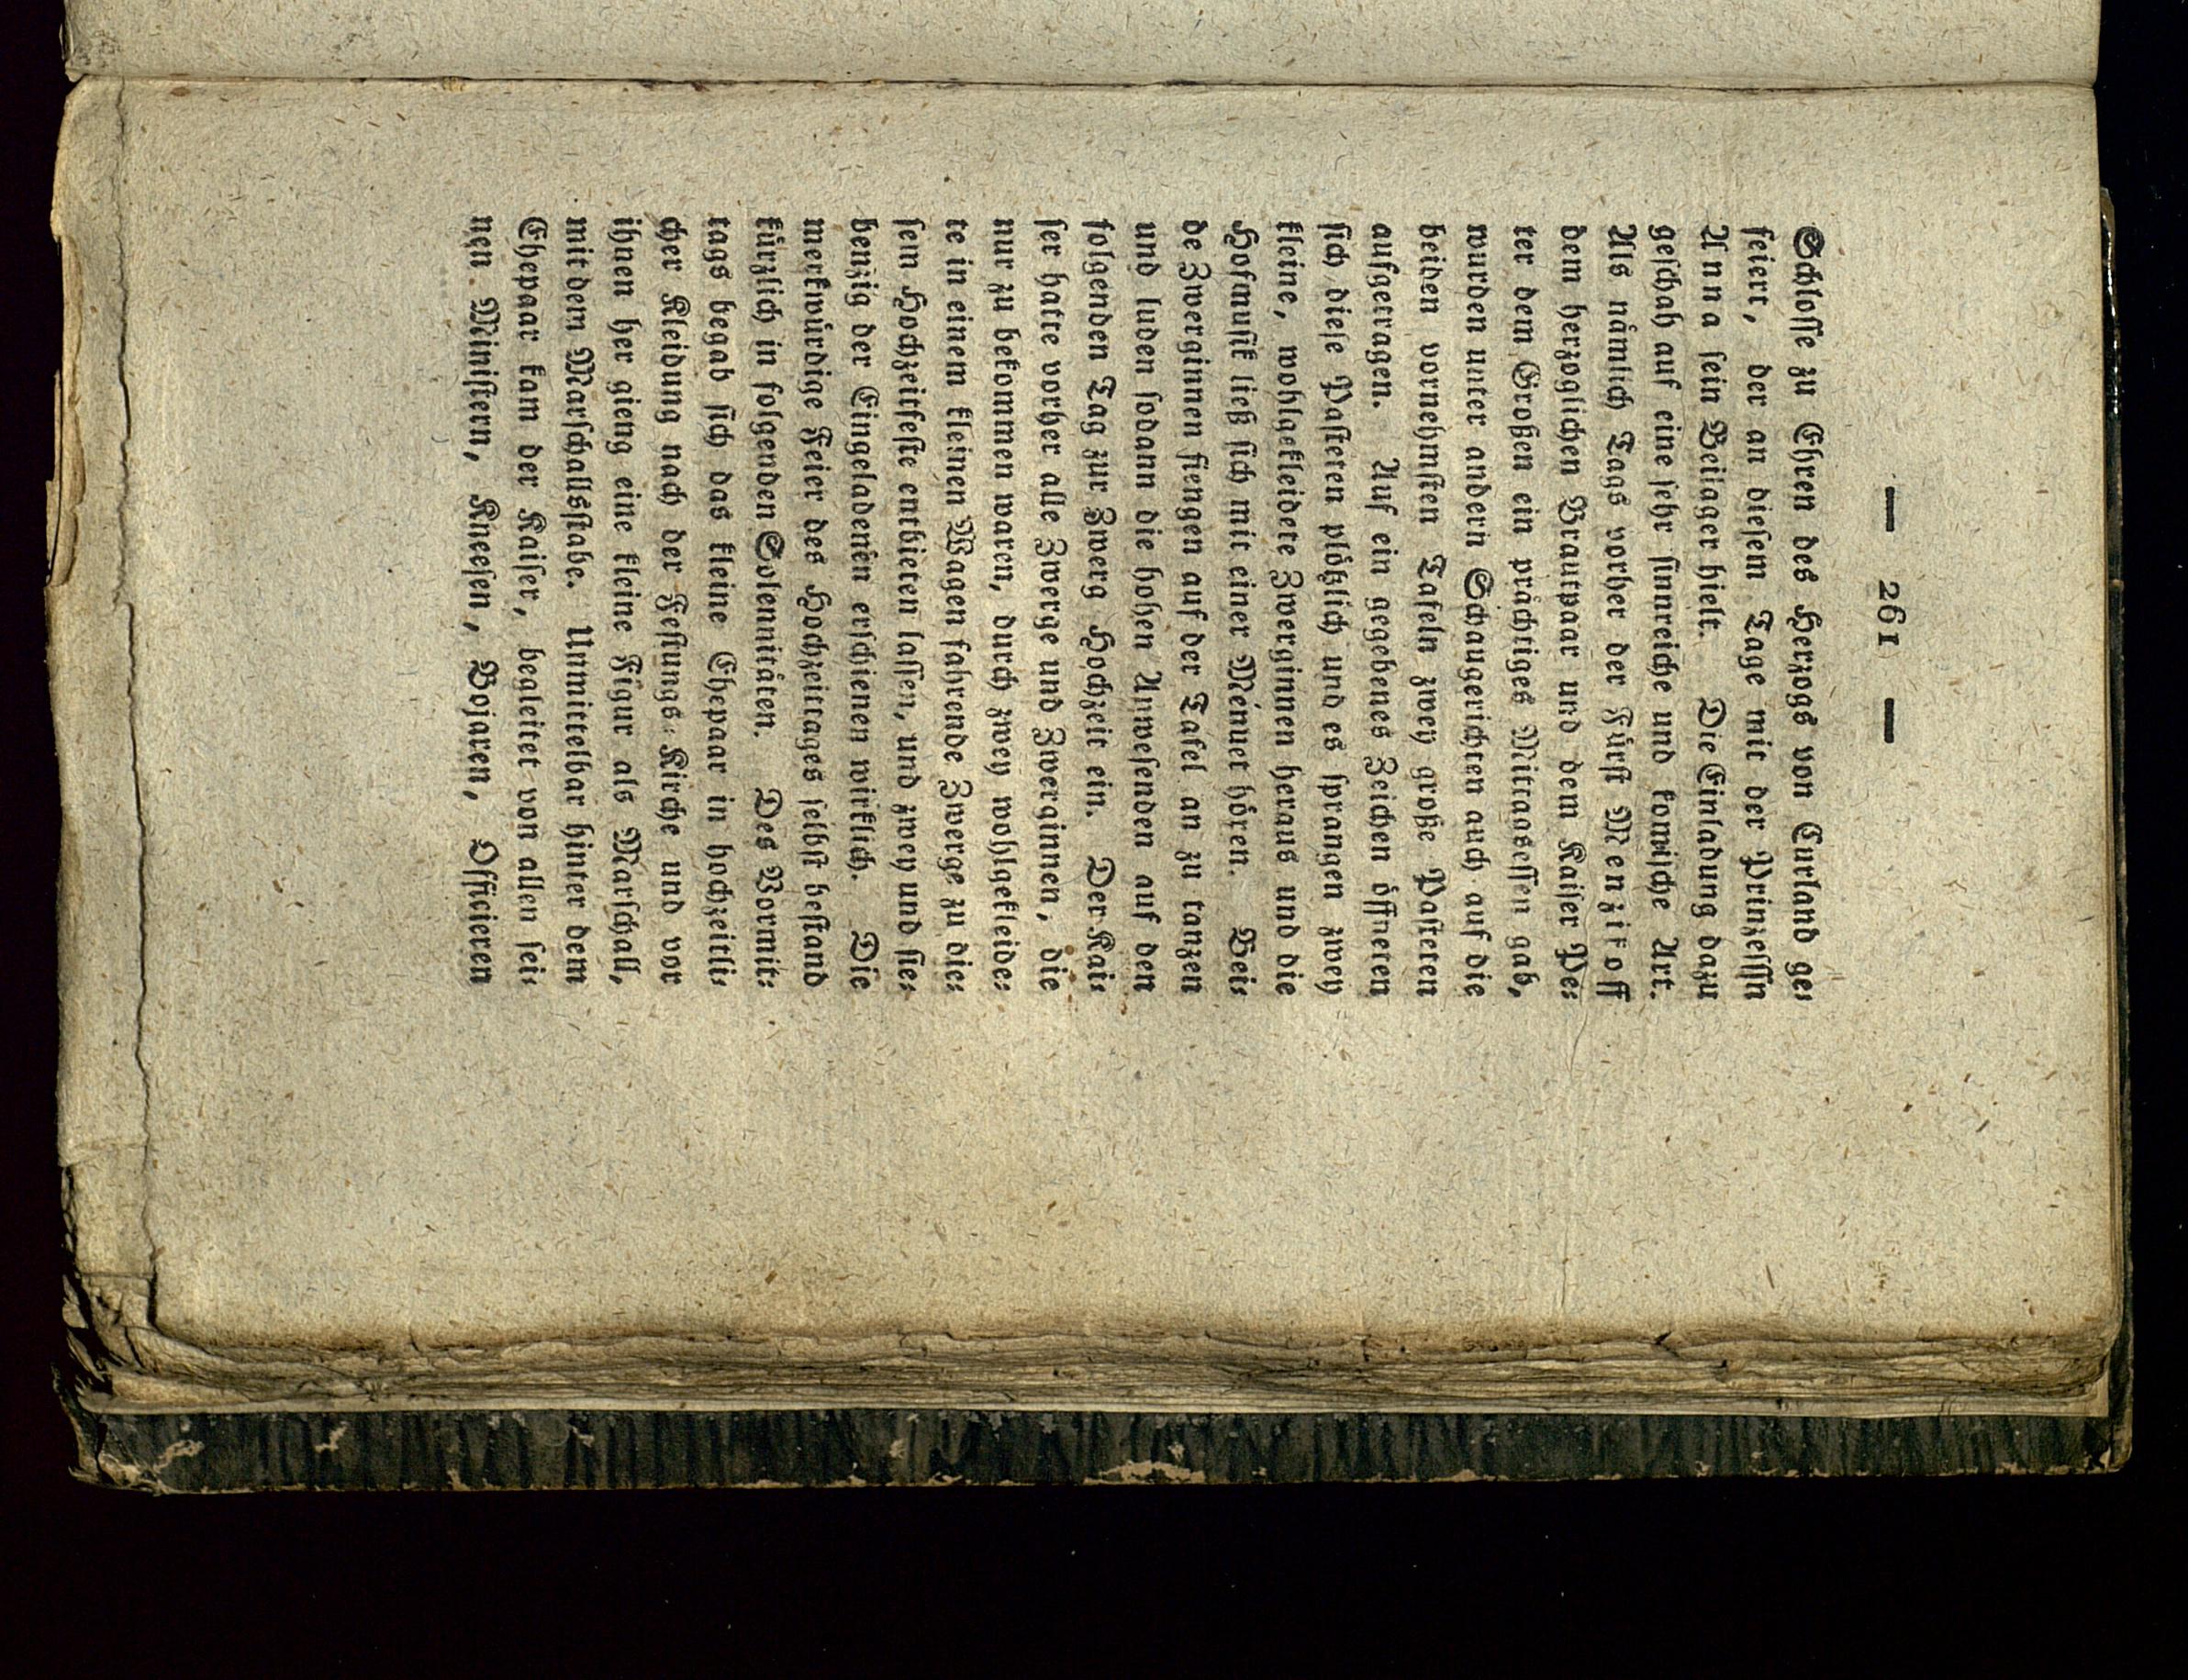 — 261 —
Schloſſe zu Ehren des Herzogs von Curland ge⸗
feiert, der an dieſem Tage mit der Prinzeſſin
Anna ſein Beilager hielt. Die Einladung dazu
geſchah auf eine ſehr ſinnreiche und komiſche Art.
Als nämlich Tags vorher der Fürſt Menzikoff
dem herzoglichen Brautpaar und dem Kaiſer Pe⸗
ter dem Großen ein prächtiges Mittagseſſen gab,
wurden unter andern Schaugerichten auch auf die
beiden vornehmſten Tafeln zwey große Paſteten
aufgetragen. Auf ein gegebenes Zeichen öffneten
ſich dieſe Paſteten plötzlich und es ſprangen zwey
kleine, wohlgekleidete Zwerginnen heraus und die
Hofmuſik ließ ſich mit einer Menuet hören. Bei⸗
de Zwerginnen fiengen auf der Tafel an zu tanzen
und luden ſodann die hohen Anweſenden auf den
folgenden Tag zur Zwerg Hochzeit ein. Der Kai⸗
ſer hatte vorher alle Zwerge und Zwerginnen, die
nur zu bekommen waren, durch zwey wohlgekleide⸗
te in einem kleinen Wagen fahrende Zwerge zu die⸗
ſem Hochzeitfeſte entbieten laſſen, und zwey und ſie⸗
benzig der Eingeladenen erſchienen wirklich. Die
merkwürdige Feier des Hochzeittages ſelbſt beſtand
kürzlich in folgenden Solennitäten. Des Vormit⸗
tags begab ſich das kleine Ehepaar in hochzeitli⸗
cher Kleidung nach der Feſtungs⸗Kirche und vor
ihnen her gieng eine kleine Figur als Marſchall,
mit dem Marſchallsſtabe. Unmittelbar hinter dem
Ehepaar kam der Kaiſer, begleitet von allen ſei⸗
nen Miniſtern, Kneeſen, Bojaren, Officieren